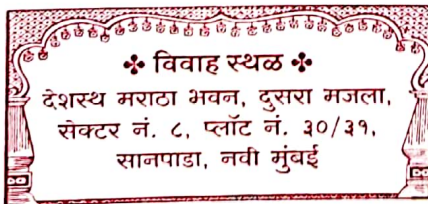 ✤ विवाह स्थळ ✤
देशस्थ मराठा भवन, दुसरा मजला,
सेक्टर नं. ८, प्लॉट नं. ३०/३१,
सानपाडा, नवी मुंबई